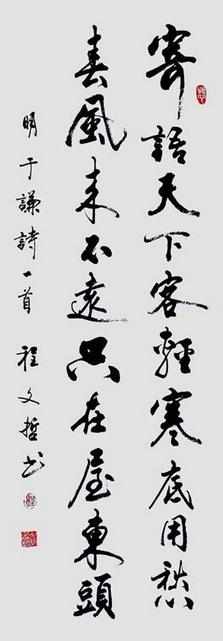 寄語天下客輕寒底用愁
春風来不遠只在屋東頭
明于謙詩一首 程文哲书